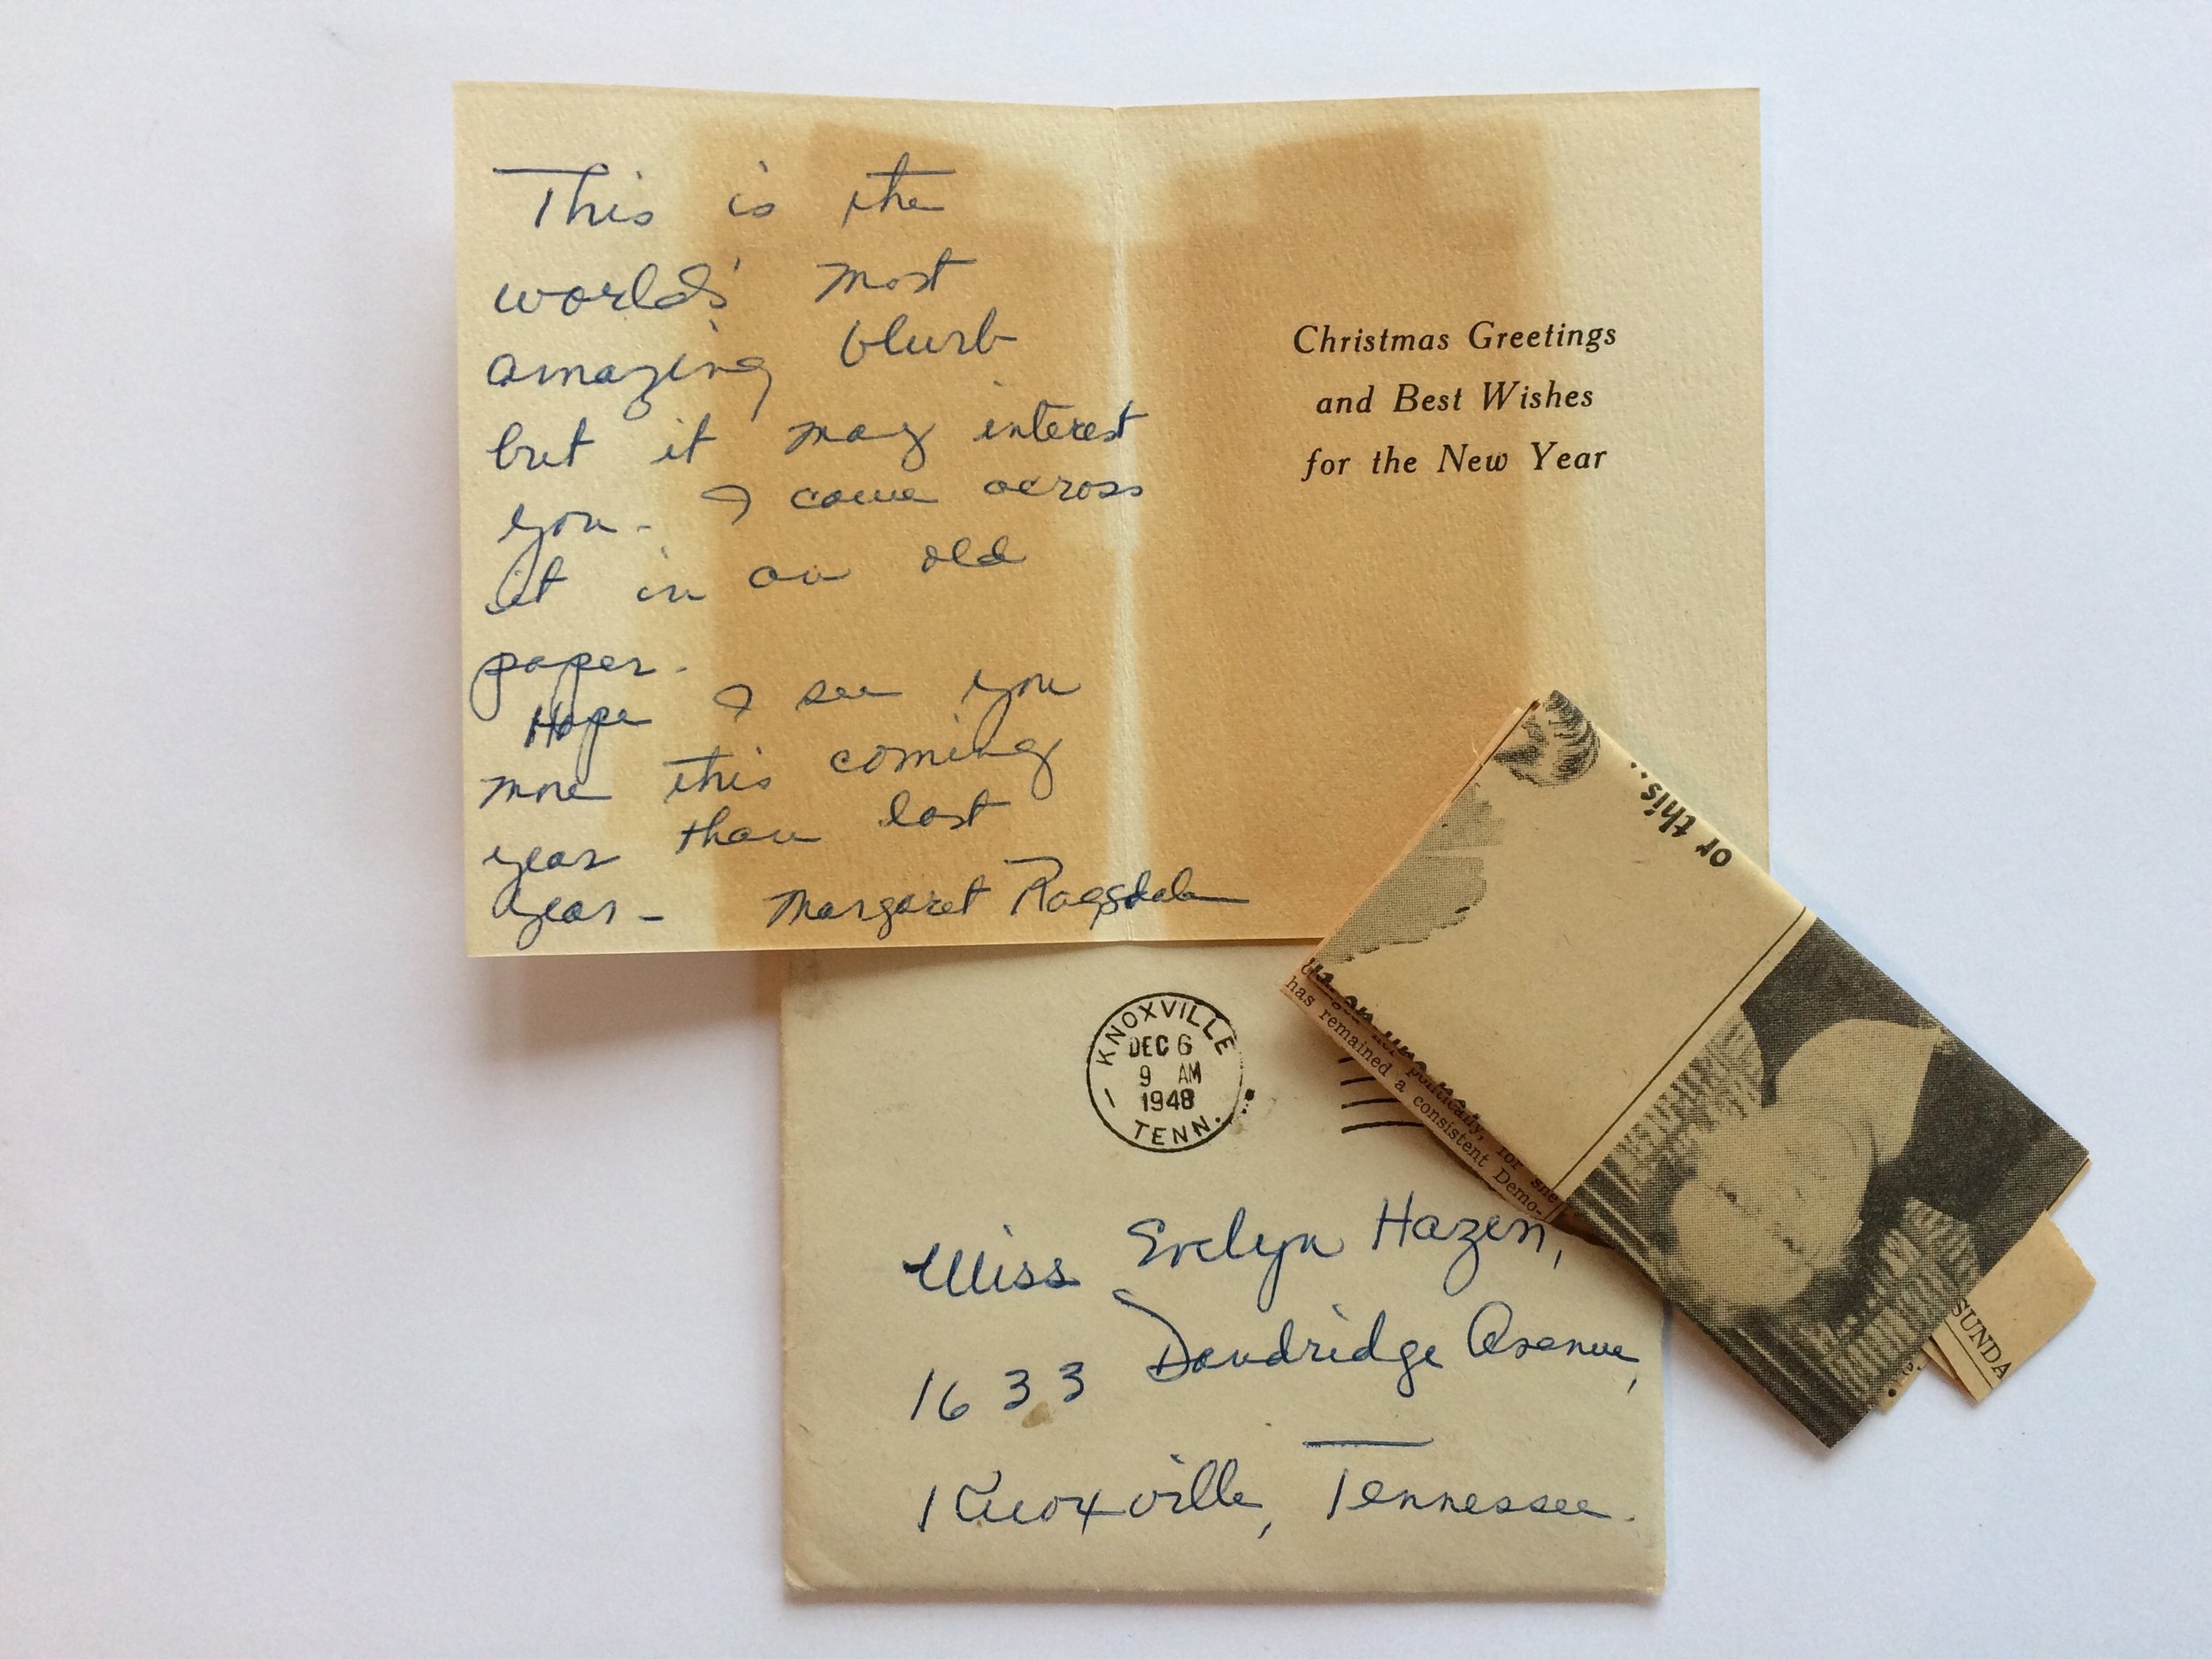 This is the
world's most
amazing blurb
but it may interest
you - I came across
it in an old
paper -
Hope I see you
more this coming
year than last
year - Margaret Ragsdale
Christmas Greetings
and Best Wishes
for the New Year
or this...
politically, for she
has remained a consistent Demo-
SUNDA
KNOXVILLE
DEC 6
9 AM
1948
TENN.
Miss Evelyn Hazen,
1633 Dandridge Avenue,
Knoxville, Tennessee.